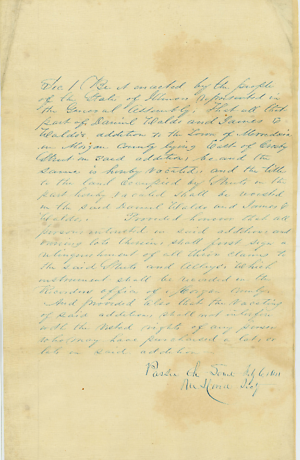 Sec 1 Be it enacted by the people
of the State of Illinois represented in
the General Assembly, That all that
part of Daniel Waldo and James E
Waldo's addition to the Town of
in Morgan County lying East of
Street in said addition, be and the
same is hereby vacated, and the title
to the land occupied by Streets in the
part hereby vacated shall be vested
in the said Daniel Waldo and James E
Waldo. Provided however that all
persons interested in said addition and
owning lots therein shall first sign a
relinquishment of all their claims to
the said Streets and Alleys. Which
instrument shall be recorded in the
Recorders office of Morgan County.
And provided also that the vacating
of said addition shall not interfere
with the vested rights of any person
who may have purchased a lot or
lots in said addition.
Passed the